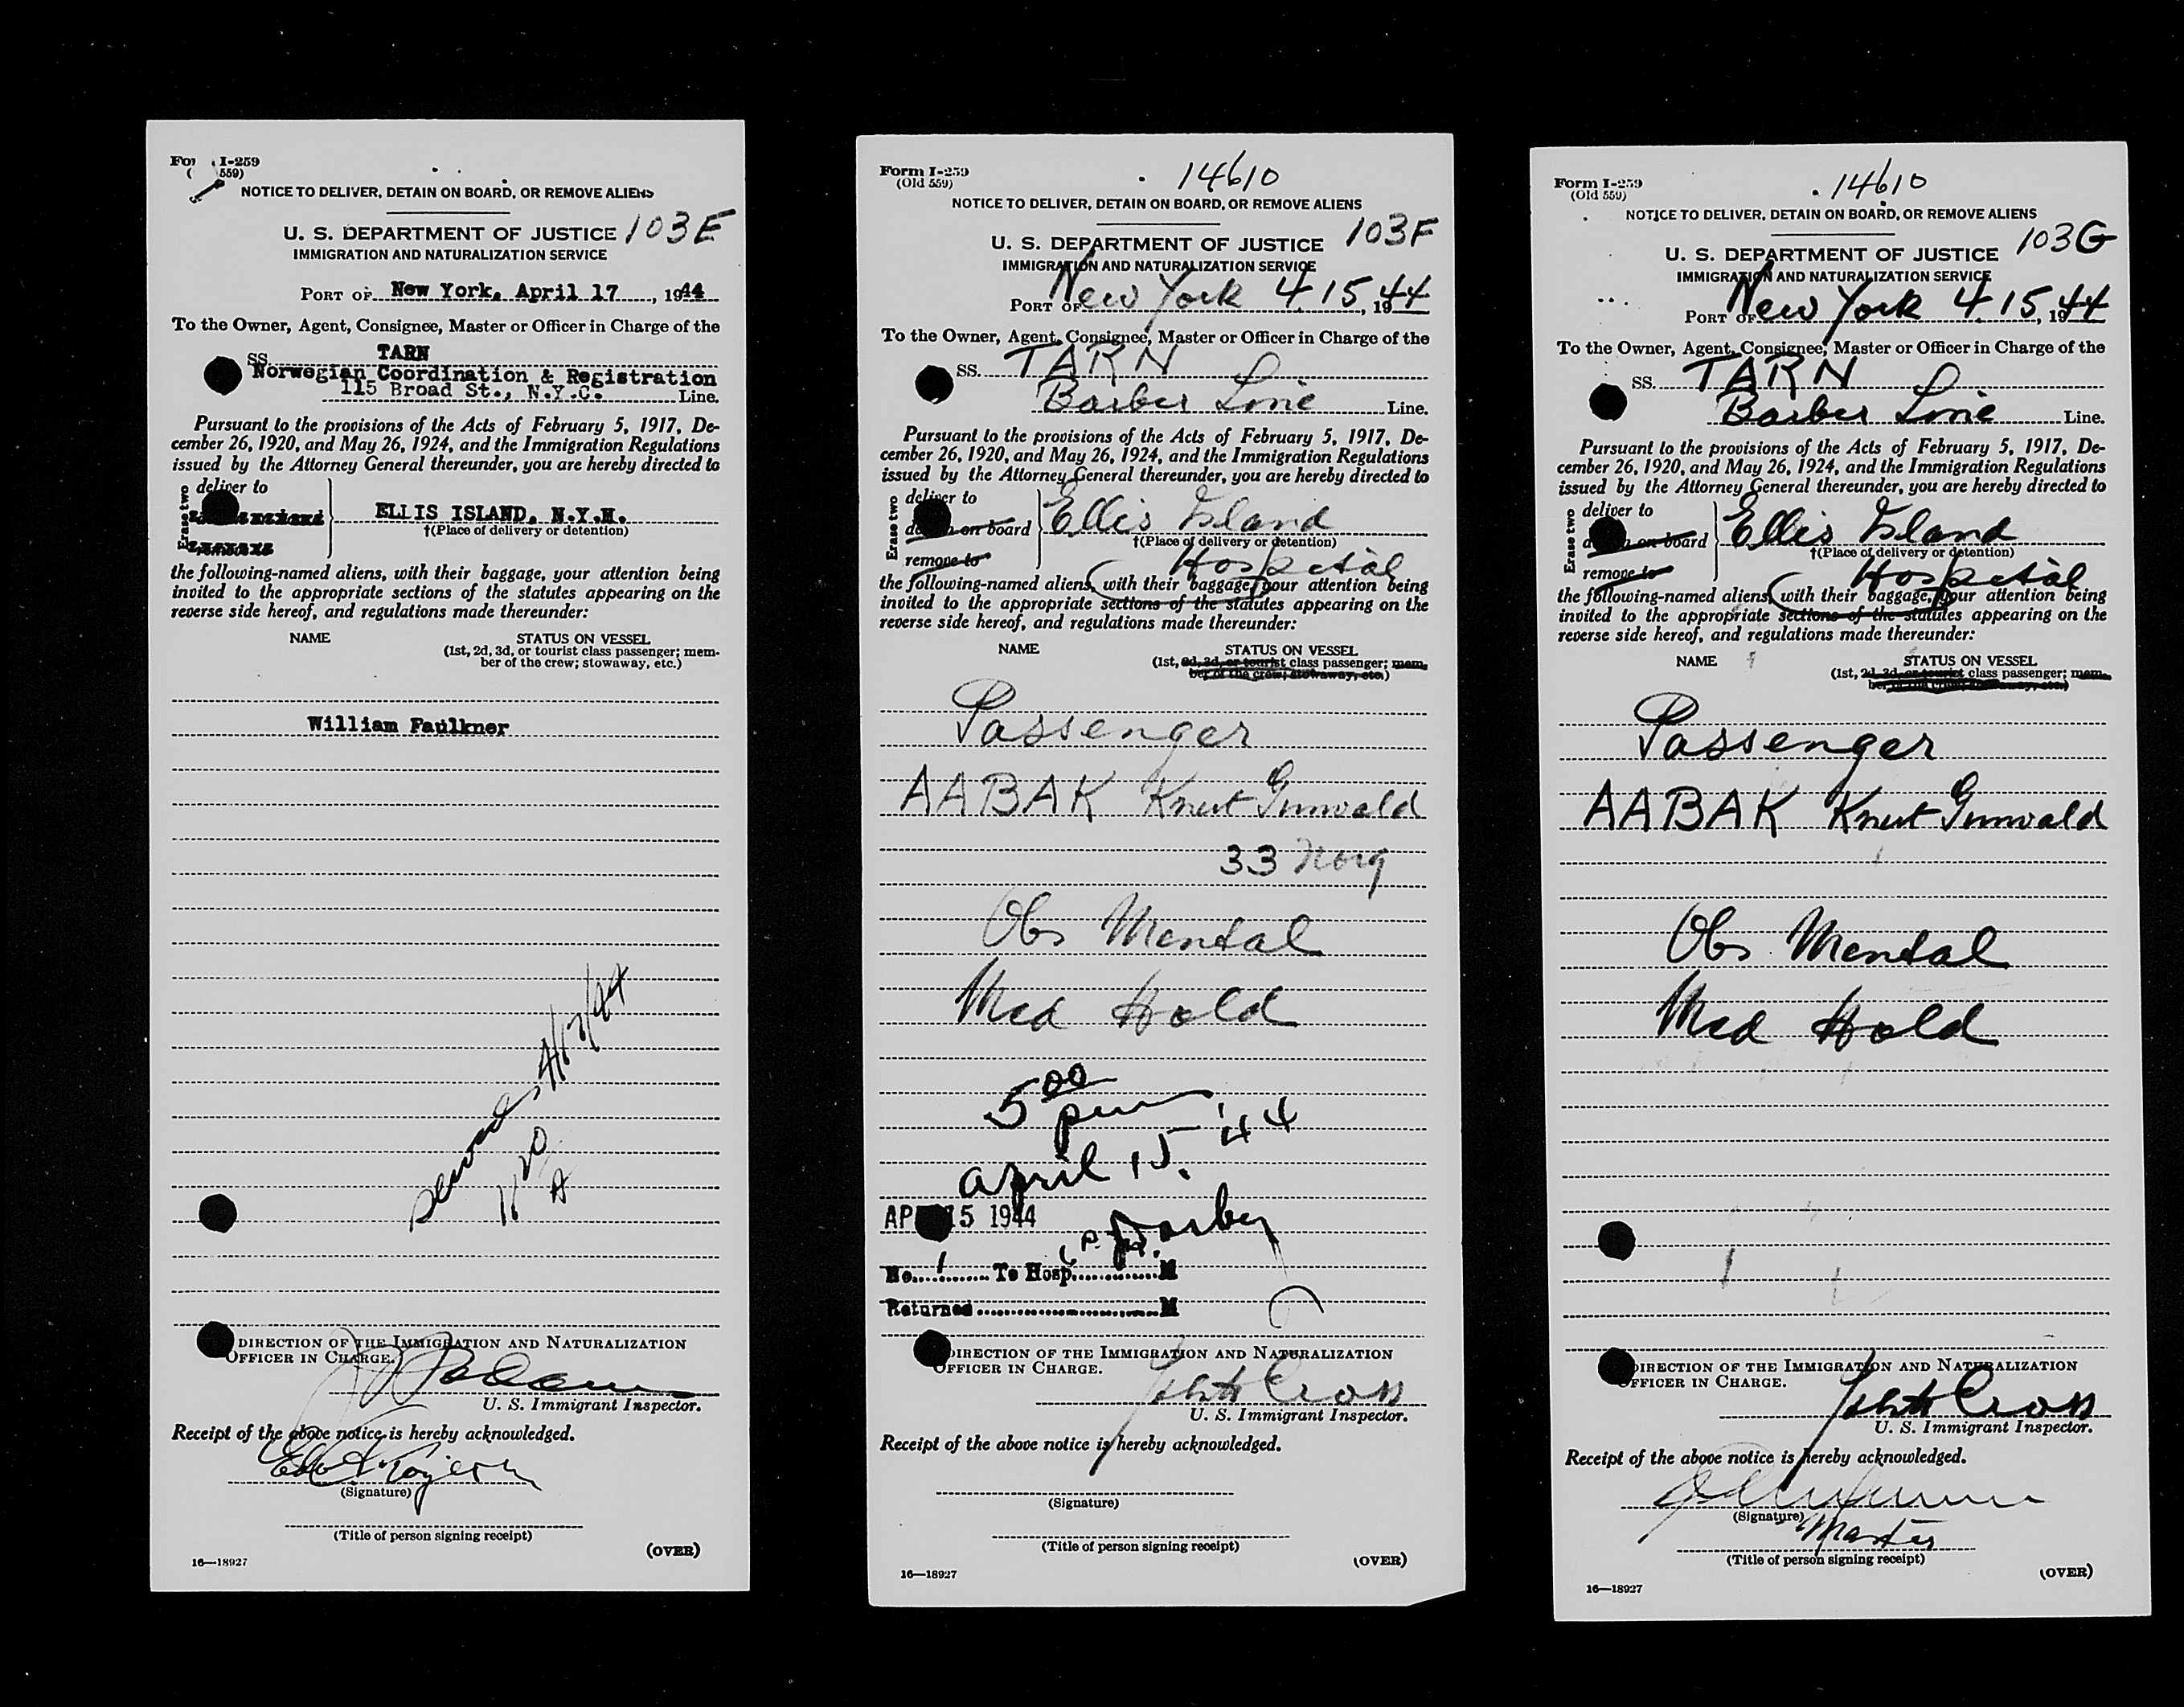 Form I-259
(559)
NOTICE TO DELIVER, DETAIN ON BOARD, OR REMOVE ALIENS
U. S. DEPARTMENT OF JUSTICE 103E
IMMIGRATION AND NATURALIZATION SERVICE
PORT OF New York, April 17, 1944
To the Owner, Agent, Consignee, Master or Officer in Charge of the
SS. TARN
Norwegian Coordination & Registration
115 Broad St., N.Y.C. Line.
Pursuant to the provisions of the Acts of February 5, 1917, De-
cember 26, 1920, and May 26, 1924, and the Immigration Regulations
issued by the Attorney General thereunder, you are hereby directed to
Erase two
deliver to
ELLIS ISLAND, N.Y.H.
†(Place of delivery or detention)
the following-named aliens, with their baggage, your attention being
invited to the appropriate sections of the statutes appearing on the
reverse side hereof, and regulations made thereunder:
NAME STATUS ON VESSEL
(1st, 2d, 3d, or tourist class passenger; mem-
ber of the crew; stowaway, etc.)
William Faulkner
4/17/44
DIRECTION OF THE IMMIGRATION AND NATURALIZATION
OFFICER IN CHARGE.
U. S. Immigrant Inspector.
Receipt of the above notice is hereby acknowledged.
(Signature)
(Title of person signing receipt)
(OVER)
16—18927
Form I-259
(Old 559)
14610
NOTICE TO DELIVER, DETAIN ON BOARD, OR REMOVE ALIENS
U. S. DEPARTMENT OF JUSTICE 103F
IMMIGRATION AND NATURALIZATION SERVICE
PORT OF New York 4 15, 1944
To the Owner, Agent, Consignee, Master or Officer in Charge of the
SS. TARN
Barber Line Line.
Pursuant to the provisions of the Acts of February 5, 1917, De-
cember 26, 1920, and May 26, 1924, and the Immigration Regulations
issued by the Attorney General thereunder, you are hereby directed to
Erase two
deliver to
on board Ellis Island
†(Place of delivery or detention)
remove to Hospital
the following-named aliens, with their baggage, your attention being
invited to the appropriate sections of the statutes appearing on the
reverse side hereof, and regulations made thereunder:
NAME STATUS ON VESSEL
(1st, 2d, 3d, or tourist class passenger; mem-
ber of the crew; stowaway, etc.)
Passenger
AABAK Knut Gunvald
33 Norg
Obs Mental
Med Hold
5 00 pm
April 15. '44
APR 15 1944
Darby
No. 1 To Hosp. M
Returned M
DIRECTION OF THE IMMIGRATION AND NATURALIZATION
OFFICER IN CHARGE.
Cross
U. S. Immigrant Inspector.
Receipt of the above notice is hereby acknowledged.
(Signature)
(Title of person signing receipt)
(OVER)
16—18927
Form I-259
(Old 559)
14610
NOTICE TO DELIVER, DETAIN ON BOARD, OR REMOVE ALIENS
U. S. DEPARTMENT OF JUSTICE 103G
IMMIGRATION AND NATURALIZATION SERVICE
PORT OF New York 4 15, 1944
To the Owner, Agent, Consignee, Master or Officer in Charge of the
SS. TARN
Barber Line Line.
Pursuant to the provisions of the Acts of February 5, 1917, De-
cember 26, 1920, and May 26, 1924, and the Immigration Regulations
issued by the Attorney General thereunder, you are hereby directed to
Erase two
deliver to
on board Ellis Island
†(Place of delivery or detention)
remove to Hospital
the following-named aliens, with their baggage, your attention being
invited to the appropriate sections of the statutes appearing on the
reverse side hereof, and regulations made thereunder:
NAME STATUS ON VESSEL
(1st, 2d, 3d, or tourist class passenger; mem-
ber of the crew; stowaway, etc.)
Passenger
AABAK Knut Gunvald
Obs Mental
Med Hold
DIRECTION OF THE IMMIGRATION AND NATURALIZATION
OFFICER IN CHARGE.
Cross
U. S. Immigrant Inspector.
Receipt of the above notice is hereby acknowledged.
(Signature)
Master
(Title of person signing receipt)
(OVER)
16—18927